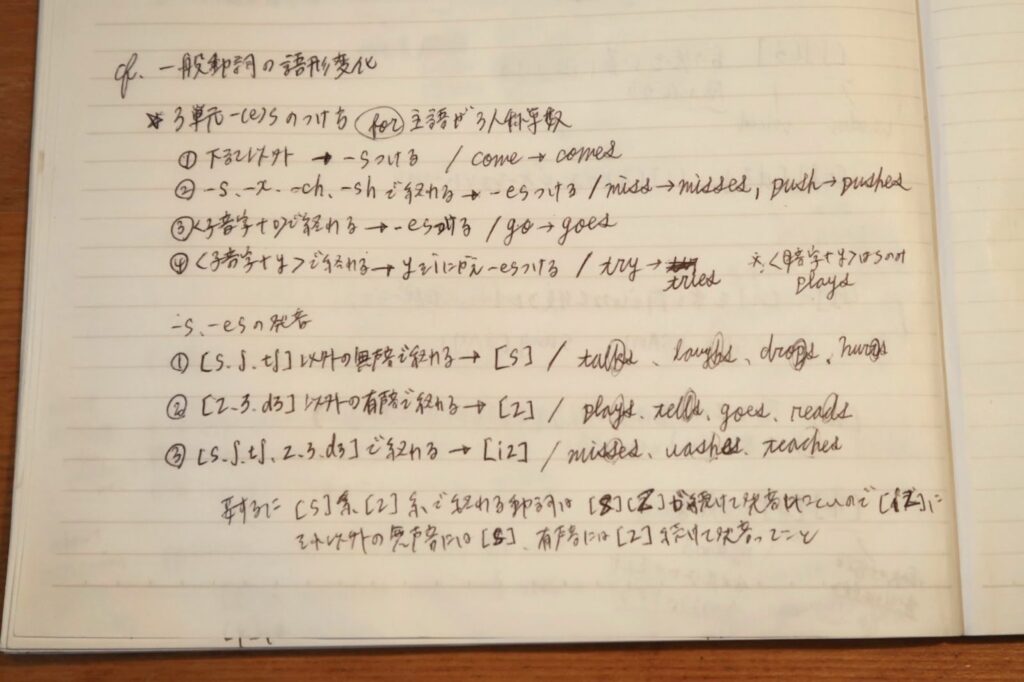 cf. 一般動詞の語形変化
* 3単元-(e)sのつける for 主語が3人称単数
① 下記以外 → -sつける / come → comes
② -s、-x、-ch、-shで終わる → -esつける / miss→misses, push→pushes
③ <子音字+o>で終わる → -esつける / go → goes
④ <子音字+y>で終わる → yをiにかえ-esつける / try → tries ※<母音字+y>はsのみ
plays
-s、-esの発音
① [s、ʃ、tʃ] 以外の無声音で終わる → [s] / talks、laughs、drops、
② [z、ʒ、dʒ] 以外の有声音で終わる → [z] / plays、tells、goes、reads
③ [s、ʃ、tʃ、z、ʒ、dʒ]で終わる → [iz] / misses、washes、teaches
要するに [s]系、[z]系で終わる動詞は [s][z]が続けて発音しにくいので [iz]に
それ以外の無声音には[s]、有声音には[z]続けて発音ってこと